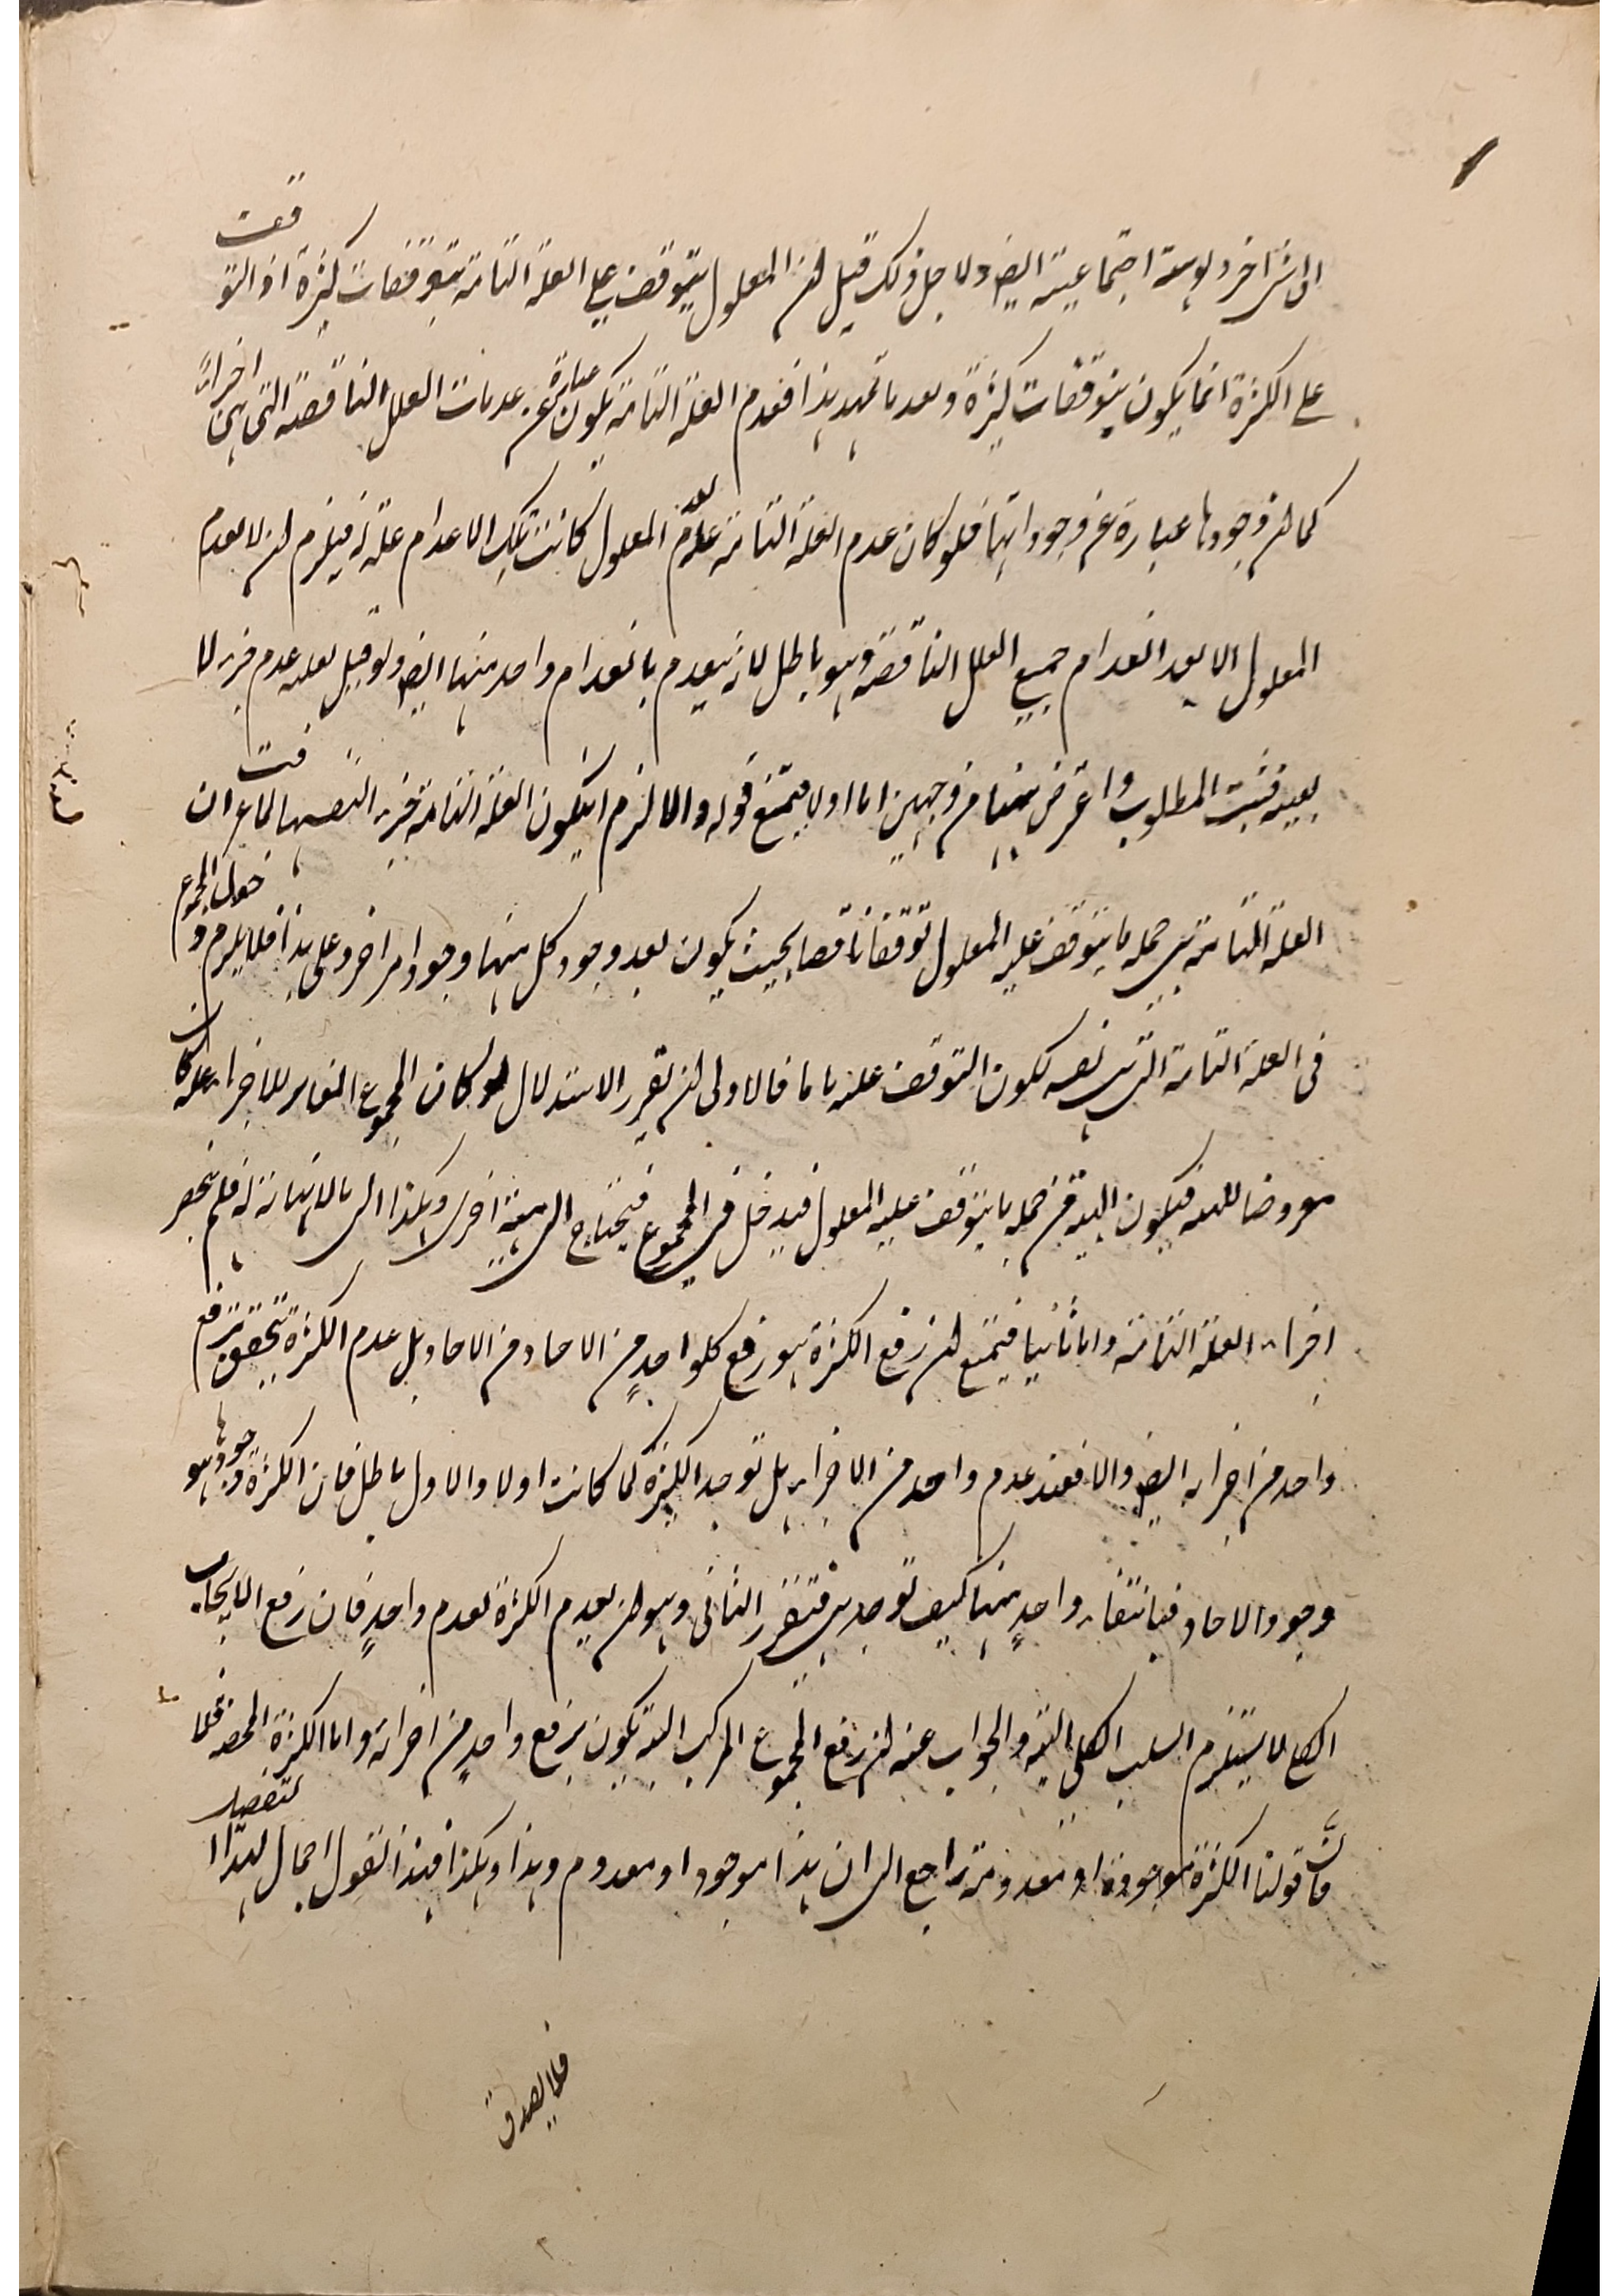 الى شئ اخر و لو هيئة اجتماعية ايضا ولاجل ذلك قيل ان المعلول يتوقف على العلة التامة بتوقفات كثيرة اذ التوقف
على الكثرة انما يكون بتوقفات كثيرة وبعد ما تمهد هذا فعدم العلة التامة يكون عبارة عن عدمات العلل الناقصة التى هى اجزائه
كما ان وجودها عبارة عن وجوداتها فلو كان عدم العلة التامة علة لعدم المعلول كانت تلك الاعدام علة له فيلزم ان لا يعدم
المعلول الا بعد انعدام جميع العلل الناقصة وهو باطل لانه يعدم بانعدام واحد منها ايضا ولو قيل بعلية عدم جزء لا
بعينه فثبت المطلوب واعترض من وجهين اما اولا فيمنع قوله والا لزم ان يكون العلة التامة جزء لنفسها لما عرفت ان
العلة التامة هى جملة ما يتوقف عليه المعلول توقفا ناقصا بحيث يكون بعد وجود كل منها وجود امر اخر وعلى هذا فلا يلزم دخول المجموع
فى العلة التامة التى هى نفسه لكون التوقف عليه تاما فالاولى ان يقرر الاستدلال لو كان المجموع المغاير للاجزاء علة كان
معروضا للهيئة فيكون الهيئة من جملة ما يتوقف عليه المعلول فيدخل فى المجموع فيحتاج الى هيئة اخرى وهكذا الى ما لا نهاية له فلم ينحصر
اجزاء العلة التامة واما ثانيا فيمنع ان رفع الكثرة هو رفع كل واحد من الاحاد من الاحاد بل عدم الكثرة يتحقق برفع
واحد من اجزائه ايضا والا فعند عدم واحد من الاجزاء هل توجد الكثرة كما كانت اولا والاول باطل فان الكثرة وجودها هو
وجود الاحاد فبانتفاء واحد منها كيف توجد هى فتقرر الثانى وهو ان يعدم الكثرة بعدم واحد فان رفع الايجاب
الكلى لا يستلزم السلب الكلى البتة والجواب عنه ان رفع المجموع المركب البتة يكون برفع واحد من اجزائه واما الكثرة المحضة فلا
فان قولنا الكثرة موجودة او معدومة راجع الى ان هذا موجود او معدوم وهذا وهكذا فهذا القول اجمال لهذا التفصيل
فلا يصدق